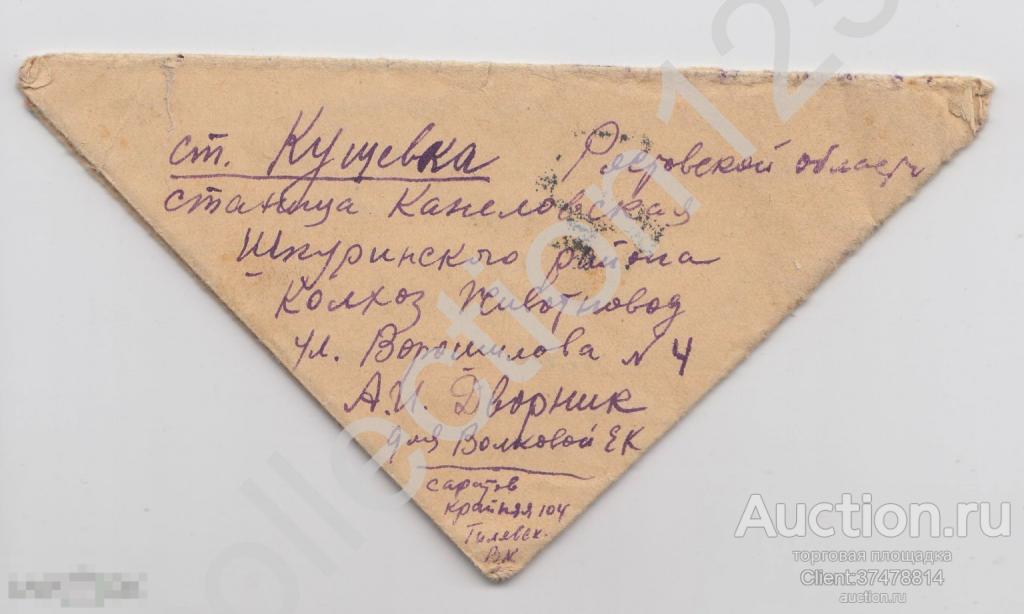 ст. Кущевка Ростовской области
станица Канеловская
Шкуринского района
Колхоз Животновод
ул. Ворошилова № 4
А.И. Дворник
для Волковой ЕК
саратов
крайняя 104
collection123
Auction.ru
торговая площадка
Client:37478814
auction.ru